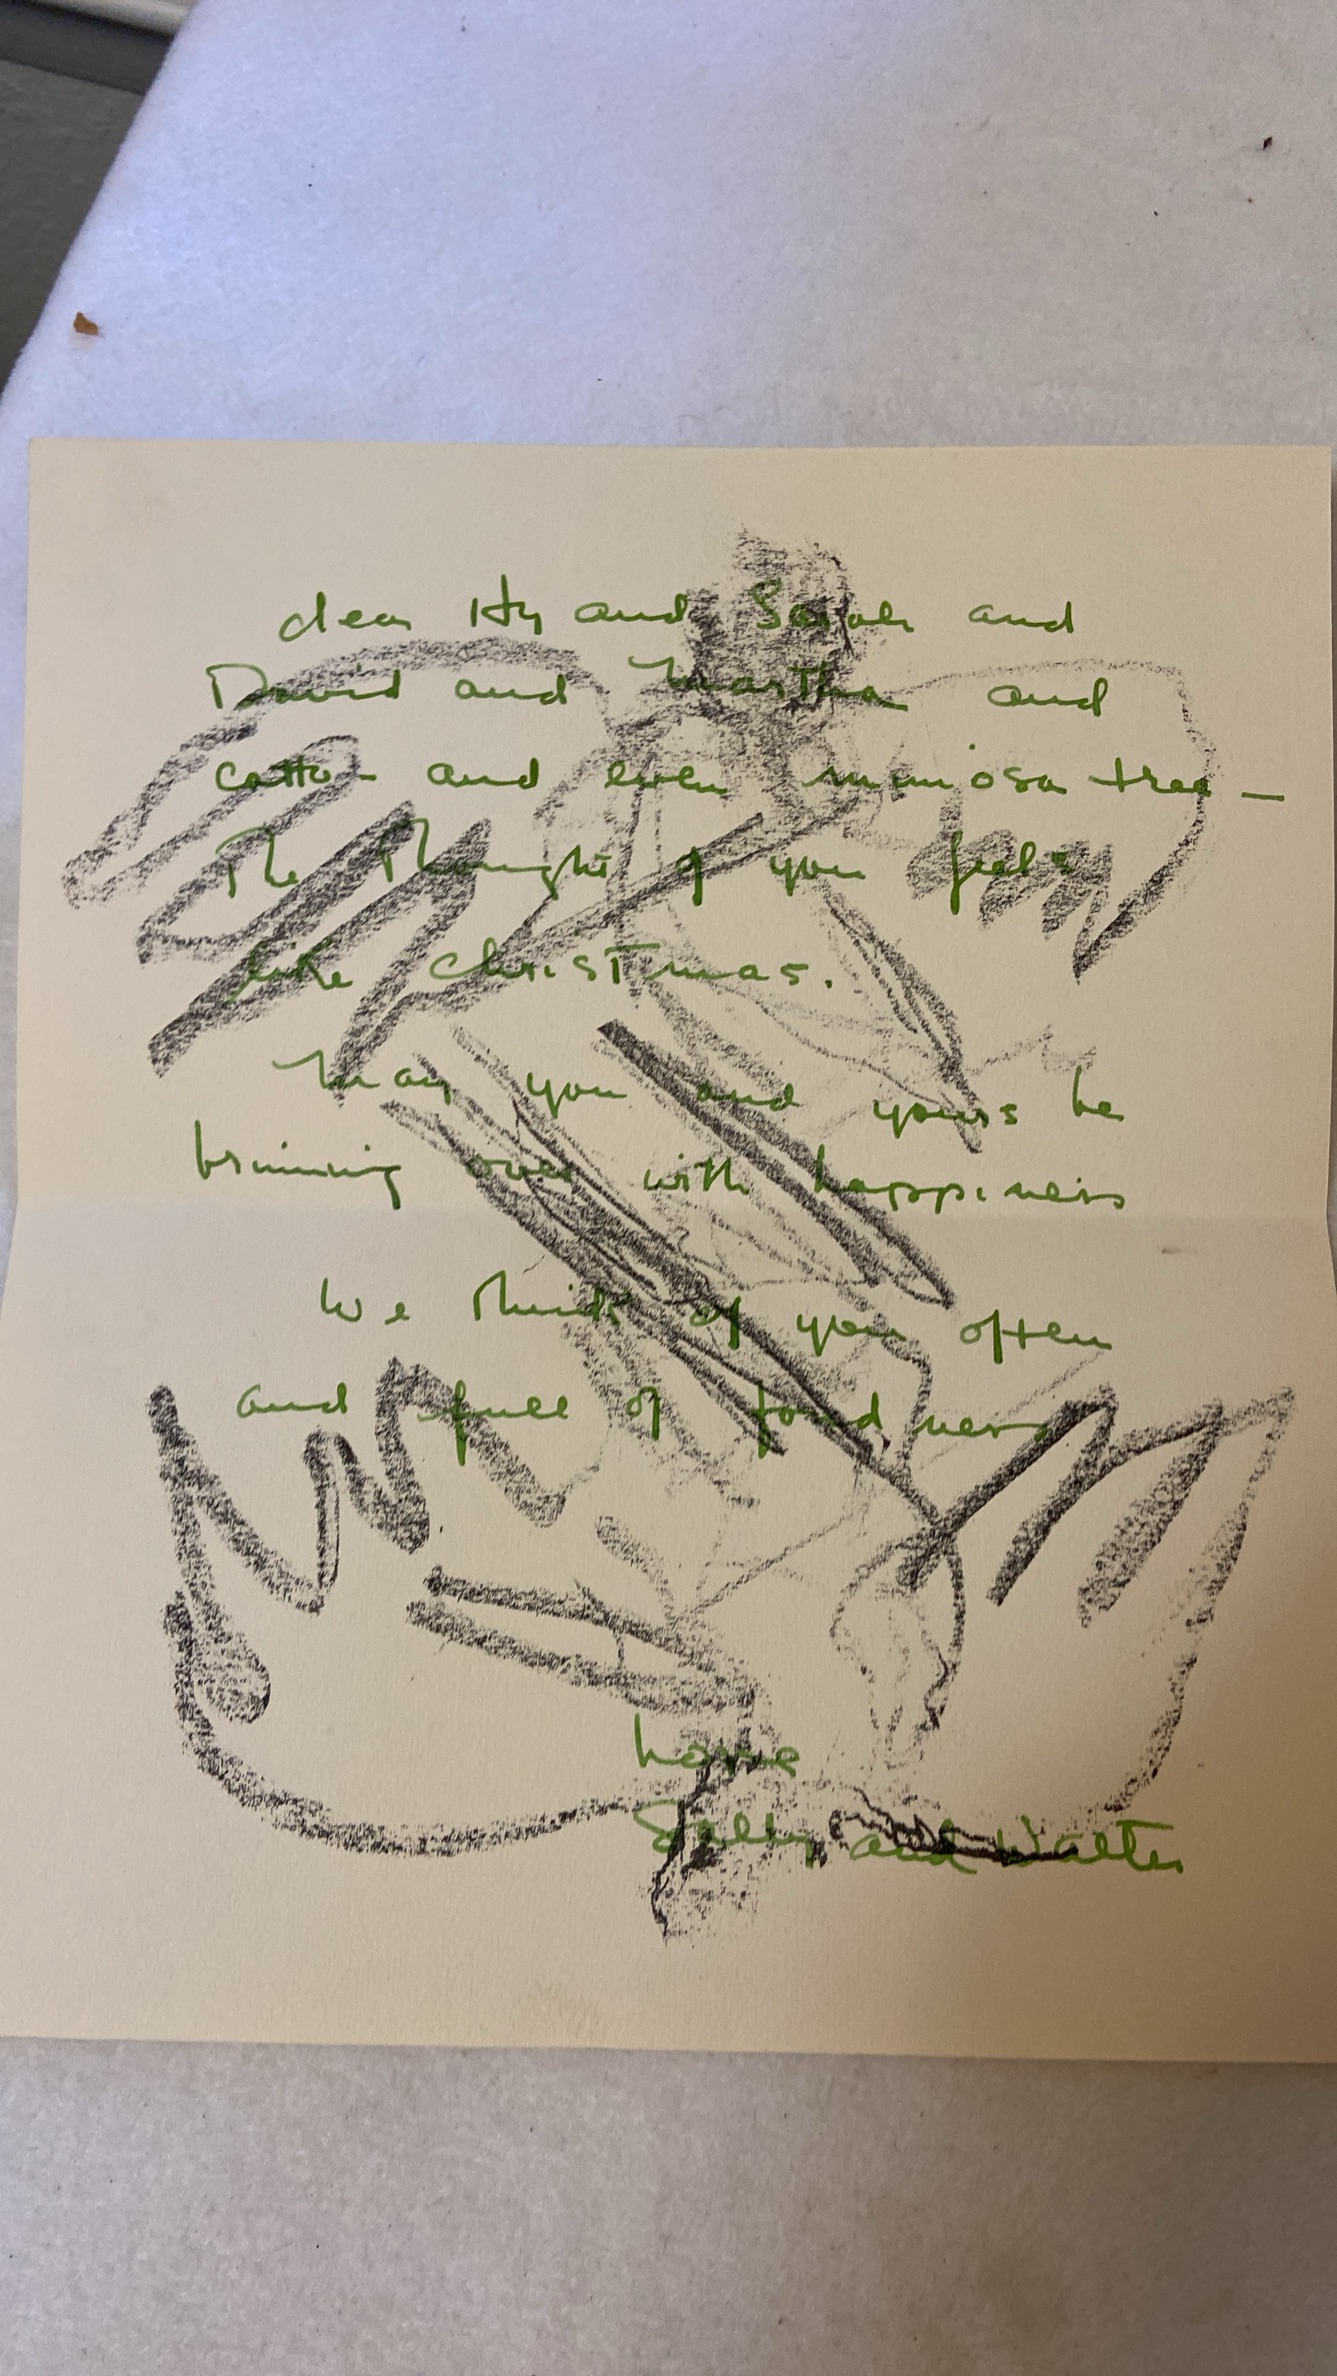 dear Hy and Sarah and
David and Martha and
and even mimosa tree -
The Thought of you feels
like christmas.
May you and yours be
brimming over with happiness
We think of you often
and full of fondness
Love
Sally and Walter